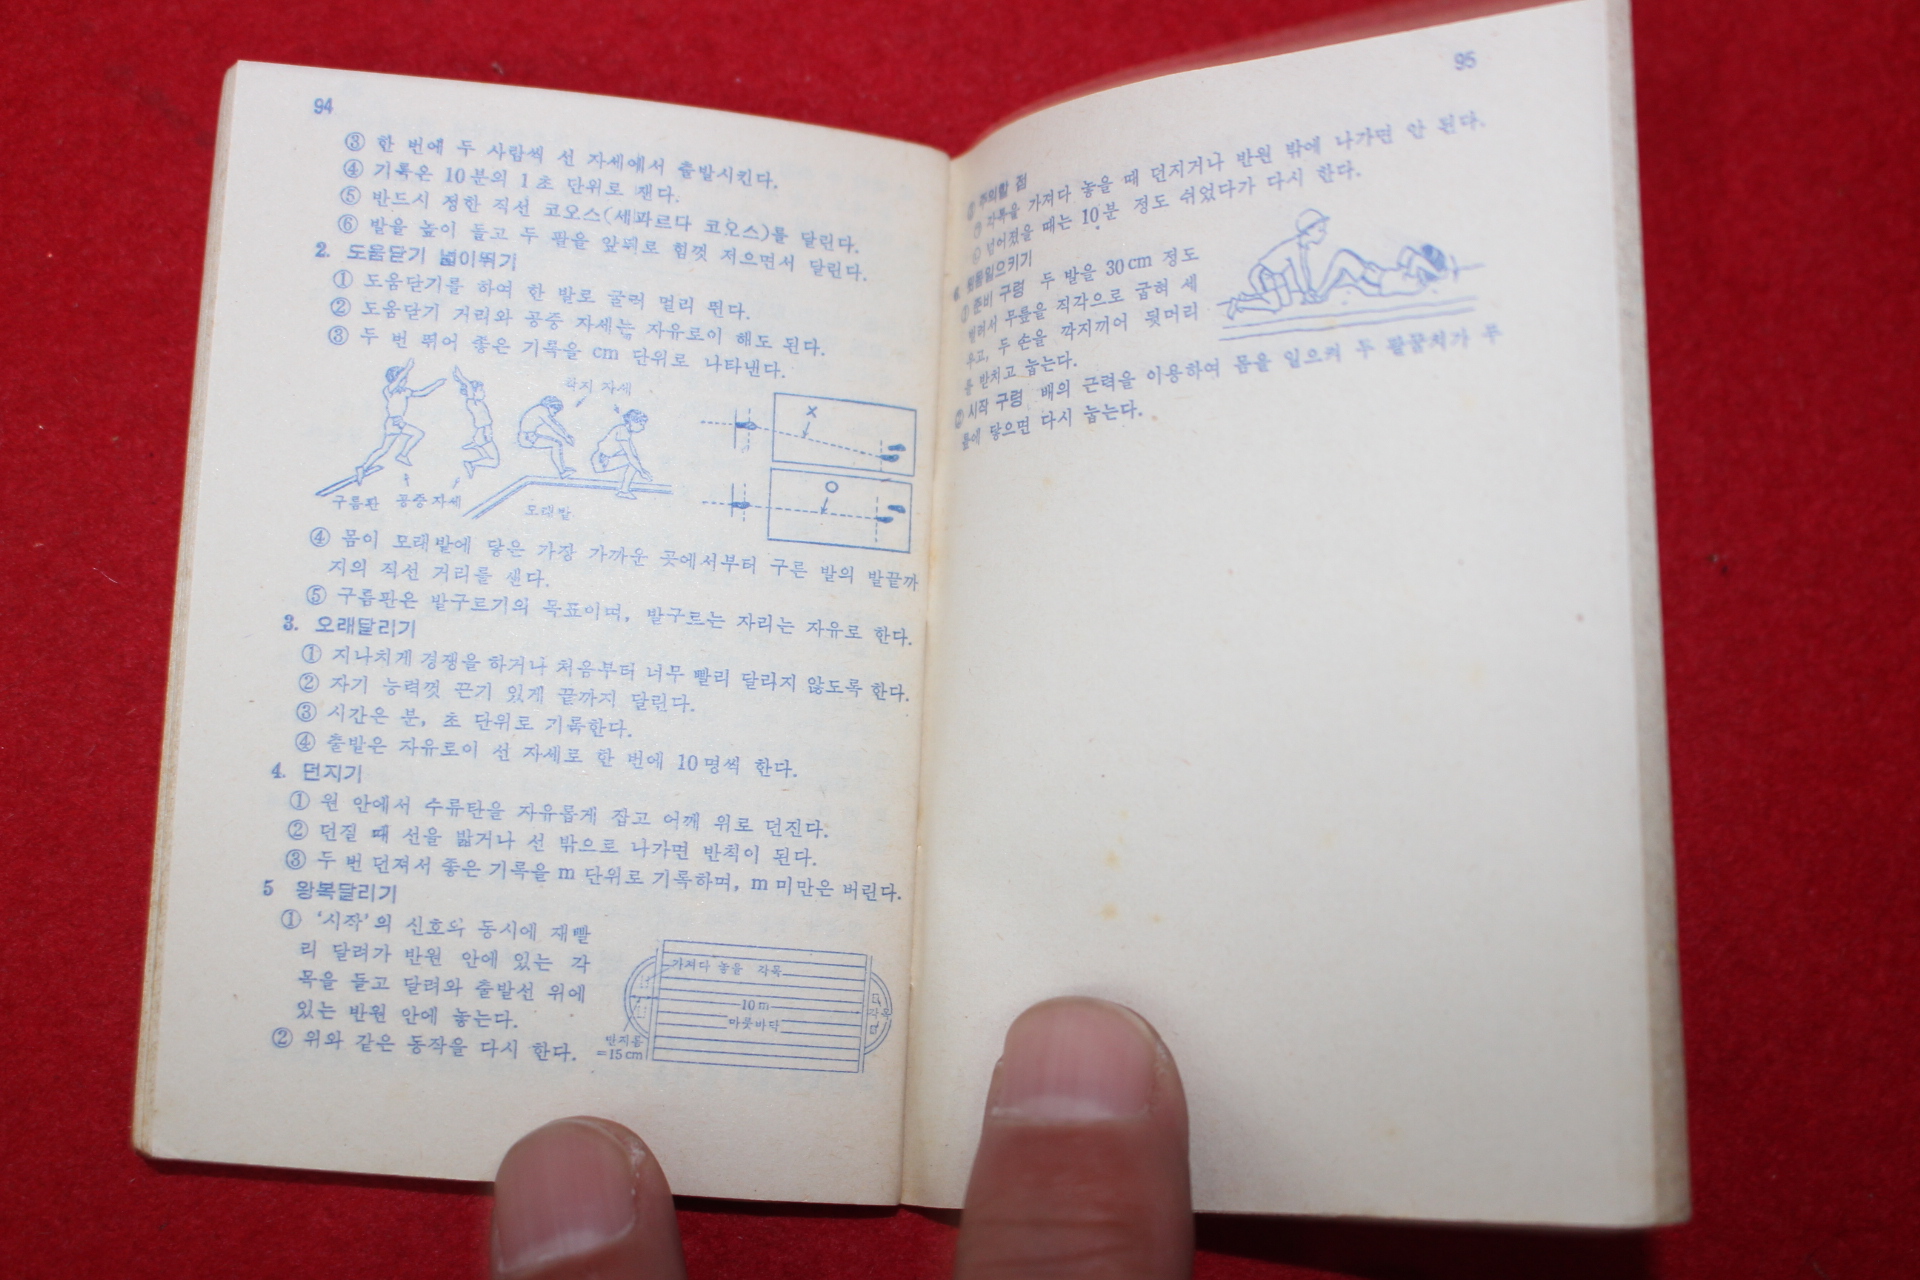 94
③ 한 번에 두 사람씩 선 자세에서 출발시킨다.
④ 기록은 10분의 1초 단위로 잰다.
⑤ 반드시 정한 직선 코오스(세파르다 코오스)를 달린다.
⑥ 발을 높이 들고 두 팔을 앞뒤로 힘껏 저으면서 달린다.
2. 도움닫기 넓이뛰기
① 도움닫기를 하여 한 발로 굴러 멀리 뛴다.
② 도움닫기 거리와 공중 자세는 자유로이 해도 된다.
③ 두 번 뛰어 좋은 기록을 cm 단위로 나타낸다.
착지 자세
×
○
구름판 공중자세
모래밭
④ 몸이 모래밭에 닿은 가장 가까운 곳에서부터 구른 발의 발끝까
지의 직선 거리를 잰다.
⑤ 구름판은 발구르기의 목표이며, 발구르는 자리는 자유로 한다.
3. 오래달리기
① 지나치게 경쟁을 하거나 처음부터 너무 빨리 달리지 않도록 한다.
② 자기 능력껏 끈기 있게 끝까지 달린다.
③ 시간은 분, 초 단위로 기록한다.
④ 출발은 자유로이 선 자세로 한 번에 10명씩 한다.
4. 던지기
① 원 안에서 수류탄을 자유롭게 잡고 어깨 위로 던진다.
② 던질 때 선을 밟거나 선 밖으로 나가면 반칙이 된다.
③ 두 번 던져서 좋은 기록을 m 단위로 기록하며, m 미만은 버린다.
5 왕복달리기
① ‘시작’의 신호와 동시에 재빨
리 달려가 반원 안에 있는 각
목을 들고 달려와 출발선 위에
있는 반원 안에 놓는다.
② 위와 같은 동작을 다시 한다.
가져다 놓을 각목
10m
마룻바닥
각목
반지름
=15cm
95
주의할 점
각목을 가져다 놓을 때 던지거나 반원 밖에 나가면 안 된다.
넘어졌을 때는 10분 정도 쉬었다가 다시 한다.
윗몸일으키기
① 준비 구령 두 발을 30cm 정도
벌려서 무릎을 직각으로 굽혀 세
우고, 두 손을 깍지끼어 뒷머리
를 받치고 눕는다.
② 시작 구령 배의 근력을 이용하여 몸을 일으켜 두 팔꿈치가 무
릎에 닿으면 다시 눕는다.